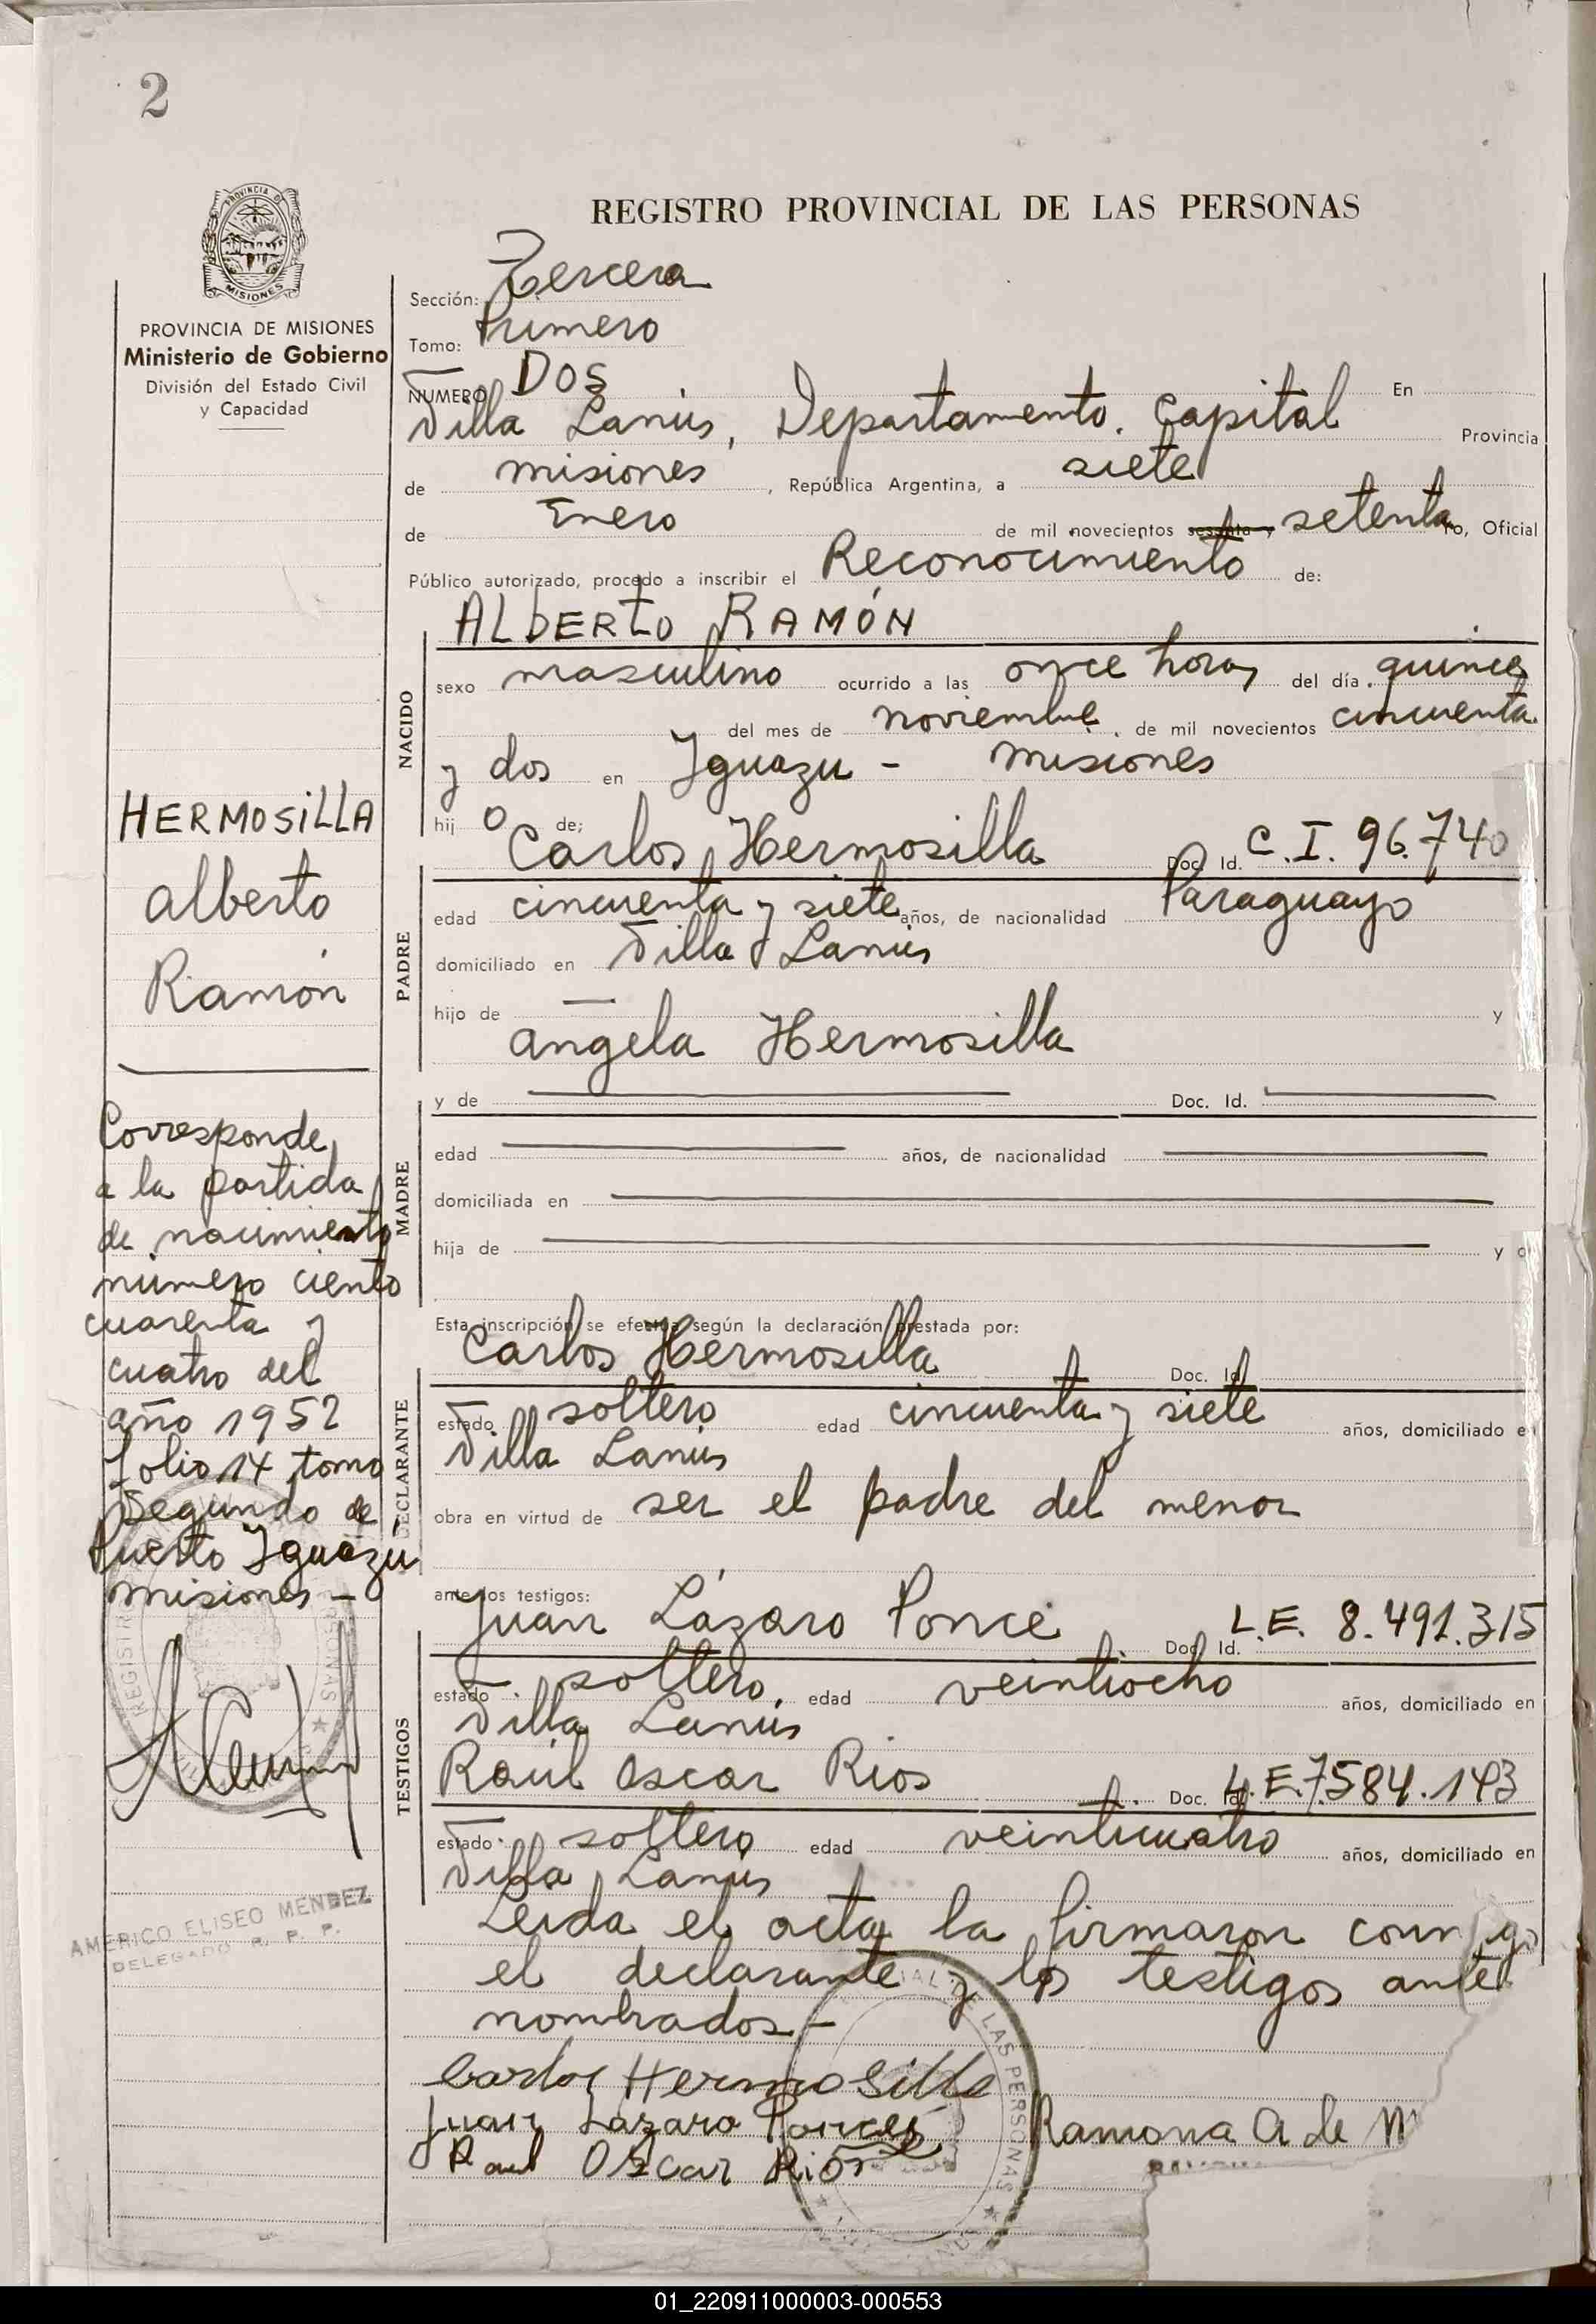 2
PROVINCIA DE
MISIONES
PROVINCIA DE MISIONES
Ministerio de Gobierno
División del Estado Civil
y Capacidad
HERMOSILLA
Alberto
Ramón
Corresponde
a la partida
de nacimiento
número ciento
cuarenta y
cuatro del
año 1952
folio 14 tomo
Segundo de
Puerto Iguazu
Misiones -
AMERICO ELISEO MENDEZ
DELEGADO R. P. P.
REGISTRO PROVINCIAL DE LAS PERSONAS
Sección: Tercera
Tomo: Primero
NUMERO DOS En
Villa Lanús, Departamento. Capital Provincia
de misiones, República Argentina, a siete
de Enero de mil novecientos sesenta y setenta Yo, Oficial
Público autorizado, procedo a inscribir el Reconocimiento de:
NACIDO
ALBERTO RAMÓN
sexo masculino ocurrido a las once horas del día quince
del mes de noviembre de mil novecientos cincuenta
y dos en Iguazu - Misiones
hij o de;
PADRE
Carlos Hermosilla Doc. Id. C.I. 96.740
edad cincuenta y siete años, de nacionalidad Paraguayo
domiciliado en Villa Lanús
hijo de — y
Angela Hermosilla
MADRE
y de Doc. Id.
edad años, de nacionalidad
domiciliada en
hija de y
Esta inscripción se efectúa según la declaración prestada por:
DECLARANTE
Carlos Hermosilla Doc. Id.
estado soltero edad cincuenta y siete años, domiciliado en
Villa Lanús
obra en virtud de ser el padre del menor
ante los testigos:
TESTIGOS
Juan Lázaro Ponce Doc. Id. L.E. 8.491.315
estado soltero, edad veintiocho años, domiciliado en
Villa Lanús
Raúl Oscar Rios Doc. Id. L.E. 7.584.143
estado soltero edad veinticuatro años, domiciliado en
Villa Lanús
Leida el acta la firmaron conmigo
el declarante y los testigos ante
nombrados.-
Carlos Hermosilla
Juan Lázaro Ponce
Raul Oscar Rios
Ramona A de
LAS PERSONAS
01_220911000003-000553